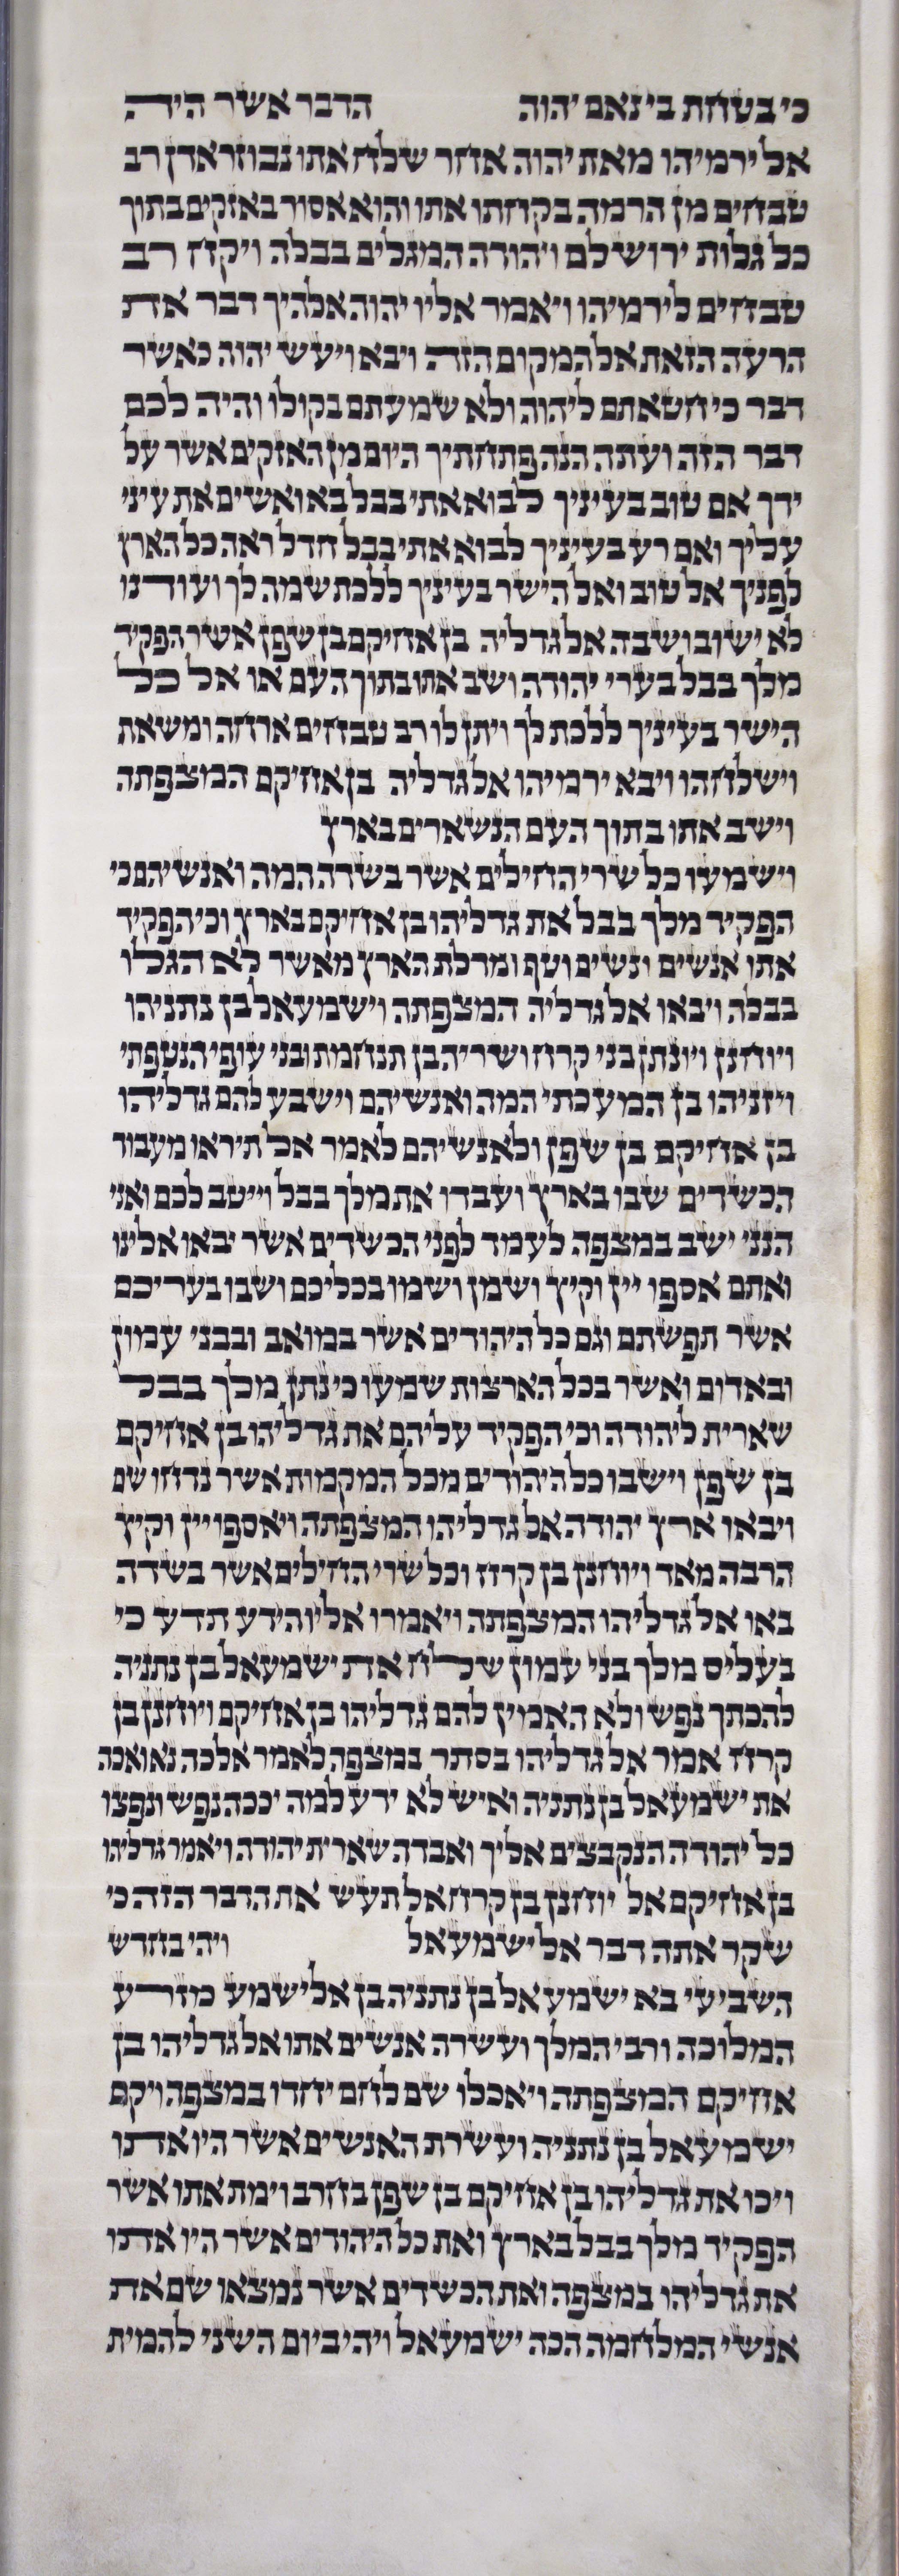 כי בטחת בי נאם יהוה הדבר אשר היה
אל ירמיהו מאת יהוה אחר שלח אתו נבוזראדן רב
טבחים מן הרמה בקחתו אתו והוא אסור באזקים בתוך
כל גלות ירושלם ויהודה המגלים בבלה ויקח רב
טבחים לירמיהו ויאמר אליו יהוה אלהיך דבר את
הרעה הזאת אל המקום הזה ויבא ויעש יהוה כאשר
דבר כי חטאתם ליהוה ולא שמעתם בקולו והיה לכם
דבר הזה ועתה הנה פתחתיך היום מן האזקים אשר על
ידך אם טוב בעיניך לבוא אתי בבל בא ואשים את עיני
עליך ואם רע בעיניך לבוא אתי בבל חדל ראה כל הארץ
לפניך אל טוב ואל הישר בעיניך ללכת שמה לך ועודנו
לא ישוב ושבה אל גדליה בן אחיקם בן שפן אשר הפקיד
מלך בבל בערי יהודה ושב אתו בתוך העם או אל כל
הישר בעיניך ללכת לך ויתן לו רב טבחים ארחה ומשאת
וישלחהו ויבא ירמיהו אל גדליה בן אחיקם המצפתה
וישב אתו בתוך העם הנשארים בארץ
וישמעו כל שרי החילים אשר בשדה המה ואנשיהם כי
הפקיד מלך בבל את גדליהו בן אחיקם בארץ וכי הפקיד
אתו אנשים ונשים וטף ומדלת הארץ מאשר לא הגלו
בבלה ויבאו אל גדליה המצפתה וישמעאל בן נתניהו
ויוחנן ויונתן בני קרח ושריה בן תנחמת ובני עופי הנטפתי
ויזניהו בן המעכתי המה ואנשיהם וישבע להם גדליהו
בן אחיקם בן שפן ולאנשיהם לאמר אל תיראו מעבוד
הכשדים שבו בארץ ועבדו את מלך בבל וייטב לכם ואני
הנני ישב במצפה לעמד לפני הכשדים אשר יבאו אלינו
ואתם אספו יין וקיץ ושמן ושמו בכליכם ושבו בעריכם
אשר תפשתם וגם כל היהודים אשר במואב ובבני עמון
ובאדום ואשר בכל הארצות שמעו כי נתן מלך בבל
שארית ליהודה וכי הפקיד עליהם את גדליהו בן אחיקם
בן שפן וישבו כל היהודים מכל המקמות אשר נדחו שם
ויבאו ארץ יהודה אל גדליהו המצפתה ויאספו יין וקיץ
הרבה מאד ויוחנן בן קרח וכל שרי החילים אשר בשדה
באו אל גדליהו המצפתה ויאמרו אליו הידע תדע כי
בעליס מלך בני עמון שלח את ישמעאל בן נתניה
להכתך נפש ולא האמין להם גדליהו בן אחיקם ויוחנן בן
קרח אמר אל גדליהו בסתר במצפה לאמר אלכה נא ואכה
את ישמעאל בן נתניה ואיש לא ידע למה יככה נפש ונפצו
כל יהודה הנקבצים אליך ואבדה שארית יהודה ויאמר גדליהו
בן אחיקם אל יוחנן בן קרח אל תעש את הדבר הזה כי
שקר אתה דבר אל ישמעאל ויהי בחדש
השביעי בא ישמעאל בן נתניה בן אלישמע מזרע
המלוכה ורבי המלך ועשרה אנשים אתו אל גדליהו בן
אחיקם המצפתה ויאכלו שם לחם יחדו במצפה ויקם
ישמעאל בן נתניה ועשרת האנשים אשר היו אתו
ויכו את גדליהו בן אחיקם בן שפן בחרב וימת אתו אשר
הפקיד מלך בבל בארץ ואת כל היהודים אשר היו אתו
את גדליהו במצפה ואת הכשדים אשר נמצאו שם את
אנשי המלחמה הכה ישמעאל ויהי ביום השני להמית